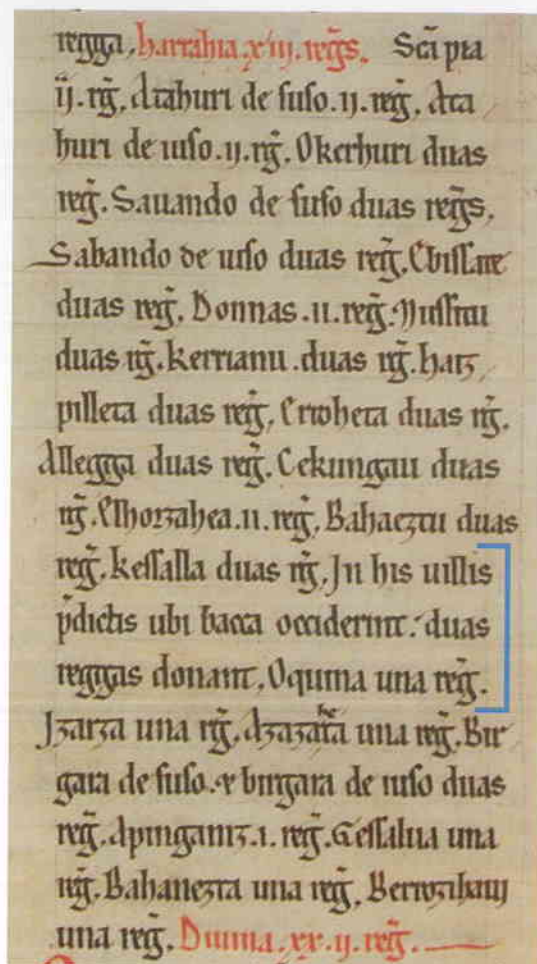 regga, harrahia. xiii. reg̃s. Sc̃a pia
ii. rg̃, Atahuri de suso. ii. reg̃, Ata
huri de iuso. ii. rg̃. Okerhuri duas
reg̃. Sauando de suso duas reg̃s.
Sabando de iuso duas reg̃, Ebissate
duas reg̃, Donnas. ii. reg̃. Mussitu
duas rg̃. kerrianu. duas rg̃. hatz
pilleta duas reg̃, Erroheta duas rg̃.
Allegga duas reg̃. Cekungau duas
rg̃. Elhorzahea. ii. reg̃, Bahaeztu duas
reg̃. kessalla duas rg̃, In his uillis
p̃dictis ubi bacca occiderint: duas
reggas donant, Oquina una reg̃.
Izarza una rg̃, Azazaheta una reg̃. Bir
gara de suso. & birgara de iuso duas
reg̃. Apinganiz. i. reg̃. Gessalua una
rg̃. Bahanezta una reg̃, Berrozihauii
una reg̃. Diuina. xx. ii. reg̃.